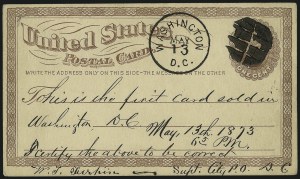 United States
POSTAL CARD
WASHINGTON
MAY
13
D.C.
WRITE THE ADDRESS ON THIS SIDE-THE MESSAGE ON THE OTHER
This is the first card sold in
Washington D.C
May, 13th 1873
I certify the above to be correct
Supt. City, P.O. D.C